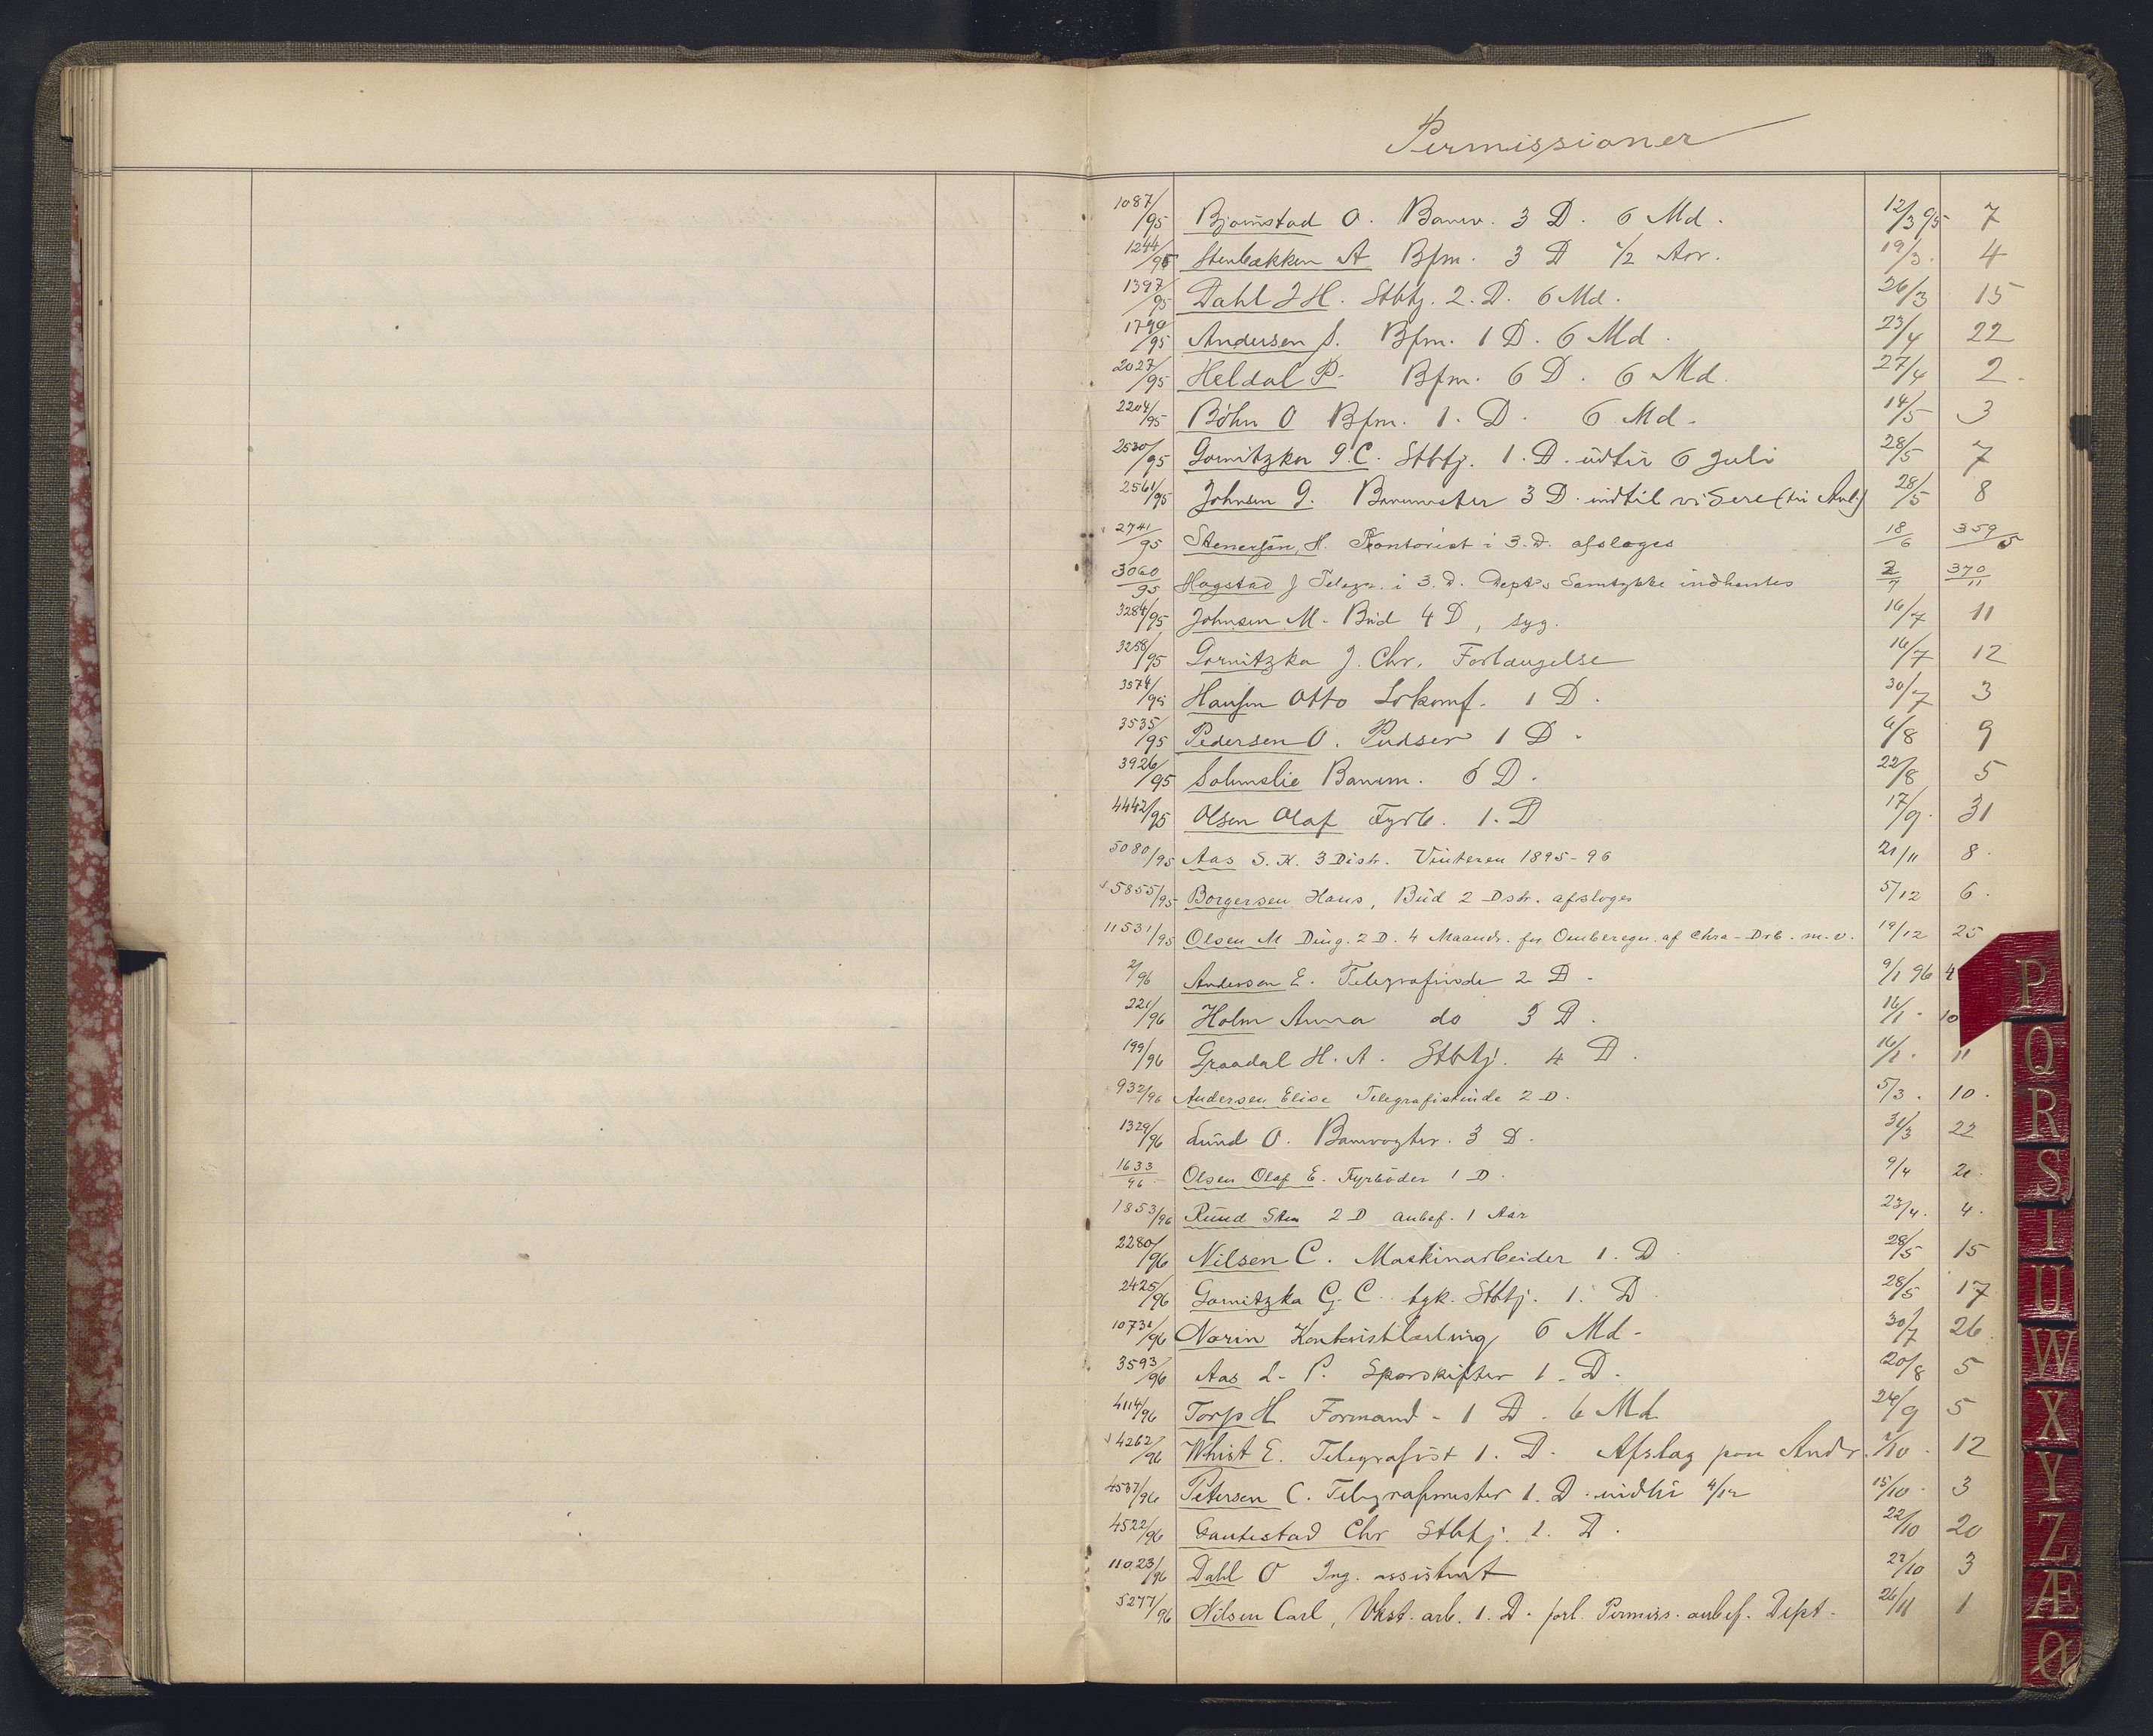 Permissioner
1087/95 Bjørnstad O. Banev. 3 D. 6 Md. 12/3 95 7
1244/95 Stenbækken A Bfm. 3 D 1/2 Aar. 19/3. 4
1397/95 Dahl J H. Stbtj. 2. D. 6 Md. 26/3 15
1740/95 Andersen S. Bfm. 1 D. 6 Md. 23/4 22
2027/95 Heldal P. Bfm. 6 D. 6 Md. 27/4 2.
2204/95 Bøhn O Bfm. 1. D. 6 Md. 14/5 3
2530/95 Gornitzka G. C. Stbtj. 1. D. indtil 6 Juli 28/5 7
2561/95 Johnsen G. Banemester 3 D. indtil videre 28/5 8
2741/95 Stenersen, H. Kontorist i 3. D. afslages 18/6 359/5
3060/95 Hogstad J Telegr. i 3. D. Dept's Samtykke indhentes 2/7 370/11
3284/95 Johnsen M. Bud 4 D, syg. 16/7 11
3258/95 Gornitzka J. Chr. Forlængelse 16/7 12
3574/95 Hansen Otto Lokomf. 1 D. 30/7 3
3535/95 Pedersen O. Pudser 1 D. 6/8 9
3926/95 Solumslie Banem. 6 D. 22/8 5
4442/95 Olsen Olaf Fyrb. 1. D 17/9. 31
5080/95 Aas S. K. 3 Distr. Vinteren 1895-96 21/11 8.
5855/95 Borgersen Hans, Bud 2 Dstr. afslages 5/12 6.
11531/95 Olsen M Ding. 2 D. 4 Maander. for Omberegn. af Chra-Drb. m.v. 19/12 25
2/96 Andersen E. Telegrafinde 2 D. 9/1 96 4
221/96 Holm Anna do 3 D. 16/1. 10
199/96 Graadal H. A. Stbtj. 4 D. 16/1. 11
932/96 Andersen Elise Telegrafistinde 2 D. 5/3. 10.
1329/96 Lund O. Banevogter. 3 D. 31/3 22
1633/96 Olsen Olaf E. Fyrbøder 1 D. 9/4 21.
1853/96 Ruud Sten 2 D anbef. 1 Aar 23/4. 4.
2280/96 Nilsen C. Maskinarbeider 1. D 28/5 15
2425/96 Gornitzka G. C. tgk. Stbtj. 1. D 28/5 17
10731/96 Norin Kontoristlærling 6 Md. 30/7 26
3593/96 Aas L. P. Sporskifter 1. D. 20/8 5
4114/96 Torp H Formand - 1 D. 6 Md 24/9 5
4262/96 Whist E. Telegrafist 1. D. Afslag paa Andr. 1/10. 12
4537/96 Petersen C. Telegrafmester 1. D. indtil 4/12 15/10. 3
4522/96 Gautestad Chr Stbtj. 1. D. 22/10 20
11023/96 Dahl O Ing. assistent 22/10 3
5277/96 Nilsen Carl, Vkst. arb. 1. D. forl. Permiss. anbef. Dept. 26/11 1
P
Q
R
S
T
U
W
X
Y
Z
Æ
Ø